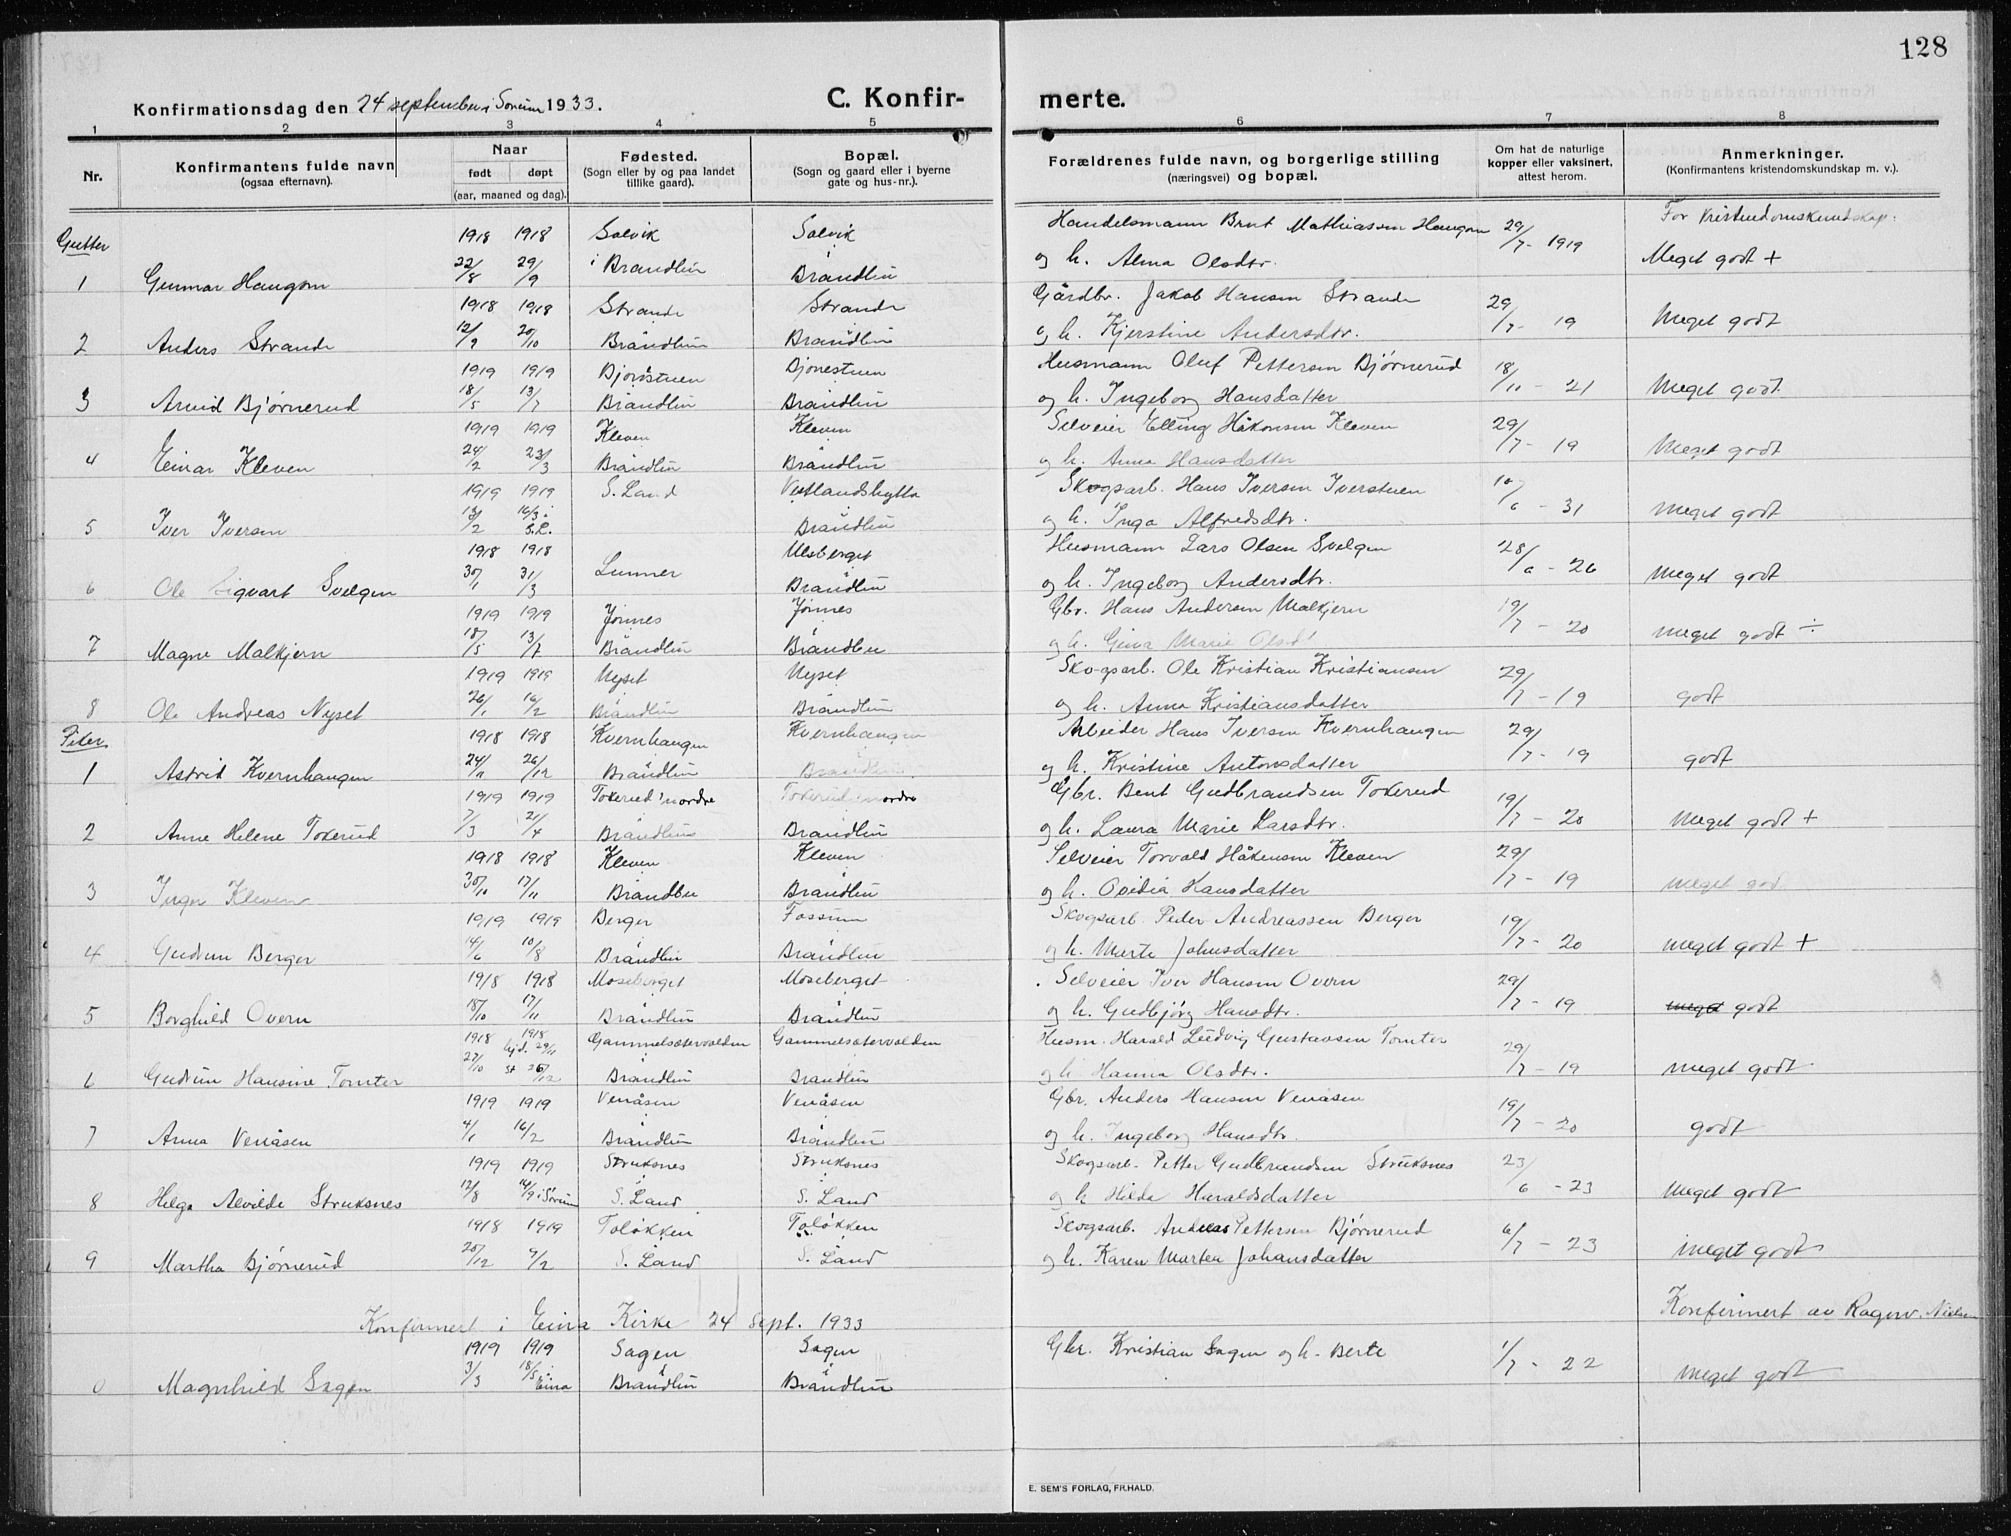 128
Konfirmationsdag den 24 september i Sørum 1933.
C. Konfirmerte.
1 2 3 4 5 6 7 8
Nr.
Konfirmantens fulde navn (ogsaa efternavn).
Naar født døpt (aar, maaned og dag).
Fødested. (Sogn eller by og paa landet tillike gaard).
Bopæl. (Sogn og gaard eller i byerne gate og hus-nr.).
Forældrenes fulde navn, og borgerlige stilling (næringsvei) og bopæl.
Om hat de naturlige kopper eller vaksinert, attest herom.
Anmerkninger. (Konfirmantens kristendomskundskap m. v.).
Gutter
1918 1918 Solvik Solvik Handelsmann Brent Mathiassen Haugom 29/7- 1919 For Kristendomskundskap:
1 Gunnar Haugom 22/8 29/9 i Brandbu Brandbu og h. Alma Olsdtr. Meget godt +
1918 1918 Strande Strande Gårdbr. Jakob Hansen Strande 29/7- 19
2 Anders Strande 12/9 20/10 Brandbu Brandbu og h. Kjerstine Andersdtr. Meget godt
1919 1919 Bjørøstuen Bjonestuen Husmann Oluf Pettersen Bjørnerud 18/11 - 21
3 Arvid Bjørnerud 18/5 13/7 Brandbu Brandbu og h. Ingeborg Hansdatter Meget godt
1919 1919 Kleven Kleven Selveier Elling Håkonsen Kleven 29/7- 19
4 Einar Kleven 24/2 23/3 Brandbu Brandbu og h. Anna Hansdatter Meget godt
1919 1919 S. Land Vestlandshytta Skogsarb. Hans Iversen Iverstuen 10/6 - 31
5 Iver Iversen 13/2 16/3 i S.L. Brandbu og h. Inga Alfredsdtr. Meget godt
1918 1918 Lunner Ulsberget Husmann Lars Olsen Svelgen 28/6 - 26
6 Ole Sigvart Svelgen 30/1 31/3 Brandbu og h. Ingeborg Andersdtr. Meget godt
1919 1919 Jønnes Jønnes Gbr. Hans Andersen Malkjern 19/7 - 20
7 Magne Malkjern 18/5 13/7 Brandbu Brandbu og h. Gina Marie Olsdt meget godt ÷
1919 1919 Nyset Nyset Skogsarb. Ole Kristian Kristiansen 29/7 - 19
8 Ole Andreas Nyset 26/1 16/2 Brandbu Brandbu og h. Anna Kristiansdatter godt
Piker
1918 1918 Kvernhaugen Kvernhaugen Arbeider Hans Iversen Kvernhaugen 29/7- 19
1 Astrid Kvernhaugen 24/11 26/12 Brandbu Brandbu og h. Kristine Antonsdatter godt
1919 1919 Tokerud nordre Tokerud nordre Gbr. Bent Gudbrandsen Tokerud 19/7 - 20
2 Anne Helene Tokerud 7/3 21/4 Brandbu Brandbu og h. Laura Marie Larsdtr. Meget godt +
1918 1918 Kleven Kleven Selveier Torvald Håkensen Kleven 29/7 - 19
3 Inger Kleven 30/10 17/11 Brandbu Brandbu og h. Ovidia Hansdatter meget god
1919 1919 Berger Fossum Skogsarb. Peder Andreassen Berger 19/7 - 20
4 Gudrun Berger 14/6 10/8 Brandbu Brandbu og h. Marte Johnsdatter meget godt +
1918 1918 Moseberget Moseberget Selveier Iver Hansen Overn 29/7 - 19
5 Borghild Overn 18/10 17/11 Brandbu Brandbu og h. Gudbjørg Hansdtr. meget godt
1918 1918 Gammelsætervolden Gammelsætervolden Husm. Harald Ludvig Gustavsen Tomter 29/7 - 19
6 Gudrun Hansine Tomter 27/10 hjd. 29/11 st 26/12 Brandbu Brandbu og h Hanna Olsdtr. meget godt
1919 1919 Venåsen Venåsen Gbr. Anders Hansen Venåsen 19/7 - 20
7 Anna Venåsen 4/1 16/2 Brandbu Brandbu og h. Ingeborg Hansdtr. godt
1919 1919 Struksnes Struksnes Skogsarb. Petter Gudbrandsen Struksnes 23/6 - 23
8 Helga Alvilde Struksnes 12/8 14/9 i Sørum S. Land S. Land og h Hilda Haraldsdatter Meget godt
1918 1919 Toløkken Toløkken Skogsarb. Andreas Pettersen Bjørnerud 6/7 - 23
9 Martha Bjørnerud 20/12 9/2 S. Land S. Land og h. Karen Martea Johansdatter meget godt
Konfirmert i Eina Kirke 24 Sept. 1933 Konfirmert av Ragnv. Nielsen
1919 1919 Sagen Sagen Gbr. Kristian Sagen og h. Berte 1/7 - 22
0 Magnhild Sagen 3/3 18/5 i Eina Brandbu Brandbu meget godt
E. SEM'S FORLAG, FR.HALD.